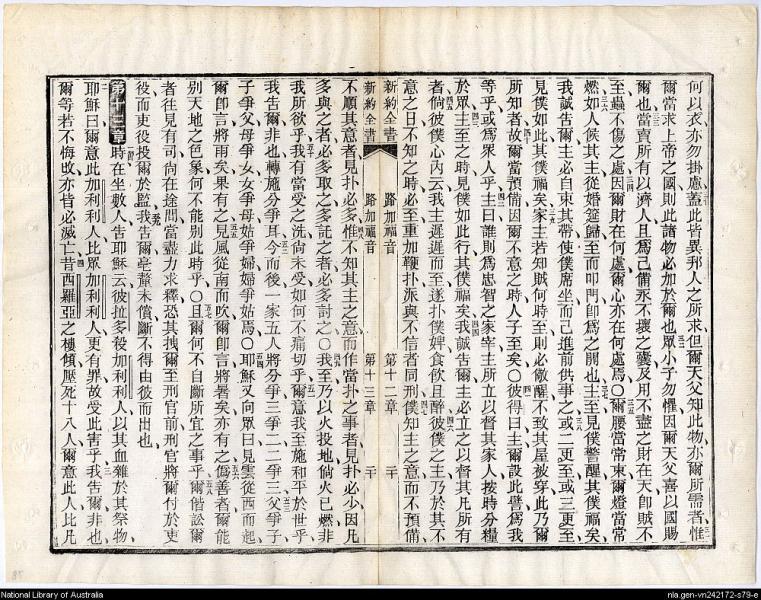 何以衣亦勿掛慮蓋此皆異邦人之所求但爾天父知此物亦爾所需者惟
爾當求上帝之國則此諸物必加於爾也眾小子勿懼因爾天父喜以國賜
爾也當賣所有以濟人且爲己備永不壞之囊及用不盡之財在天卽賊不
至蟲不傷之處因爾財在何處爾心亦在何處焉○爾腰當常束爾燈當常
燃如人候其主從婚筵歸至而叩門卽爲之開也主至見僕警醒其僕福矣
我誠告爾主必自束其帶使僕席坐而己進前供事之或二更至或三更至
見僕如此其僕福矣家主若知賊何時至則必儆醒不致其屋被穿此乃爾
所知者故爾當預備因爾不意之時人子至矣○彼得曰主爾設此譬爲我
等乎或爲眾人乎主曰誰則爲忠智之家宰主所立以督其家人按時分糧
於眾主至之時見僕如此行其僕福矣我誠告爾主必立之以督其凡所有
者倘彼僕心內云我主遲遲而至遂扑僕婢食飲且醉彼僕之主乃於其不
意之日不知之時必至重加鞭扑派與不信者同刑僕知主之意而不預備
新約全書 路加福音 第十二章 二十
新約全書 路加福音 第十三章 二十
不順其意者見扑必多惟不知其主之意而作當扑之事者見扑必少因凡
多與之者必多取之多託之者必多討之○我至乃以火投地倘火已燃非
我所欲乎我有當受之洗尚未受如何不痛切乎爾意我至施和平於世乎
我告爾非也轉施分爭耳今而後一家五人將分爭三爭二二爭三父爭子
子爭父母爭女女爭母姑爭婦婦爭姑焉○耶穌又向眾曰見雲從西而起
爾卽言將雨矣果有之見風從南而吹爾卽言將暑矣亦有之僞善者爾能
別天地之色象何不能別此時乎○且爾何不自斷所宜之事乎爾偕訟爾
者往見有司尚在途間當盡力求釋恐其拽爾至刑官前刑官將爾付於吏
役而吏役投爾於監我告爾毫釐未償斷不得由彼而出也
第十三章 時在坐數人告耶穌云彼拉多殺加利利人以其血雜於其祭物
耶穌曰爾意此加利利人比眾加利利人更有罪故受此害乎我告爾非也
爾等若不悔改亦皆必滅亡昔西羅亞之樓傾壓死十八人爾意此人比凡
National Library of Australia
nla.gen-vn242172-s79-e